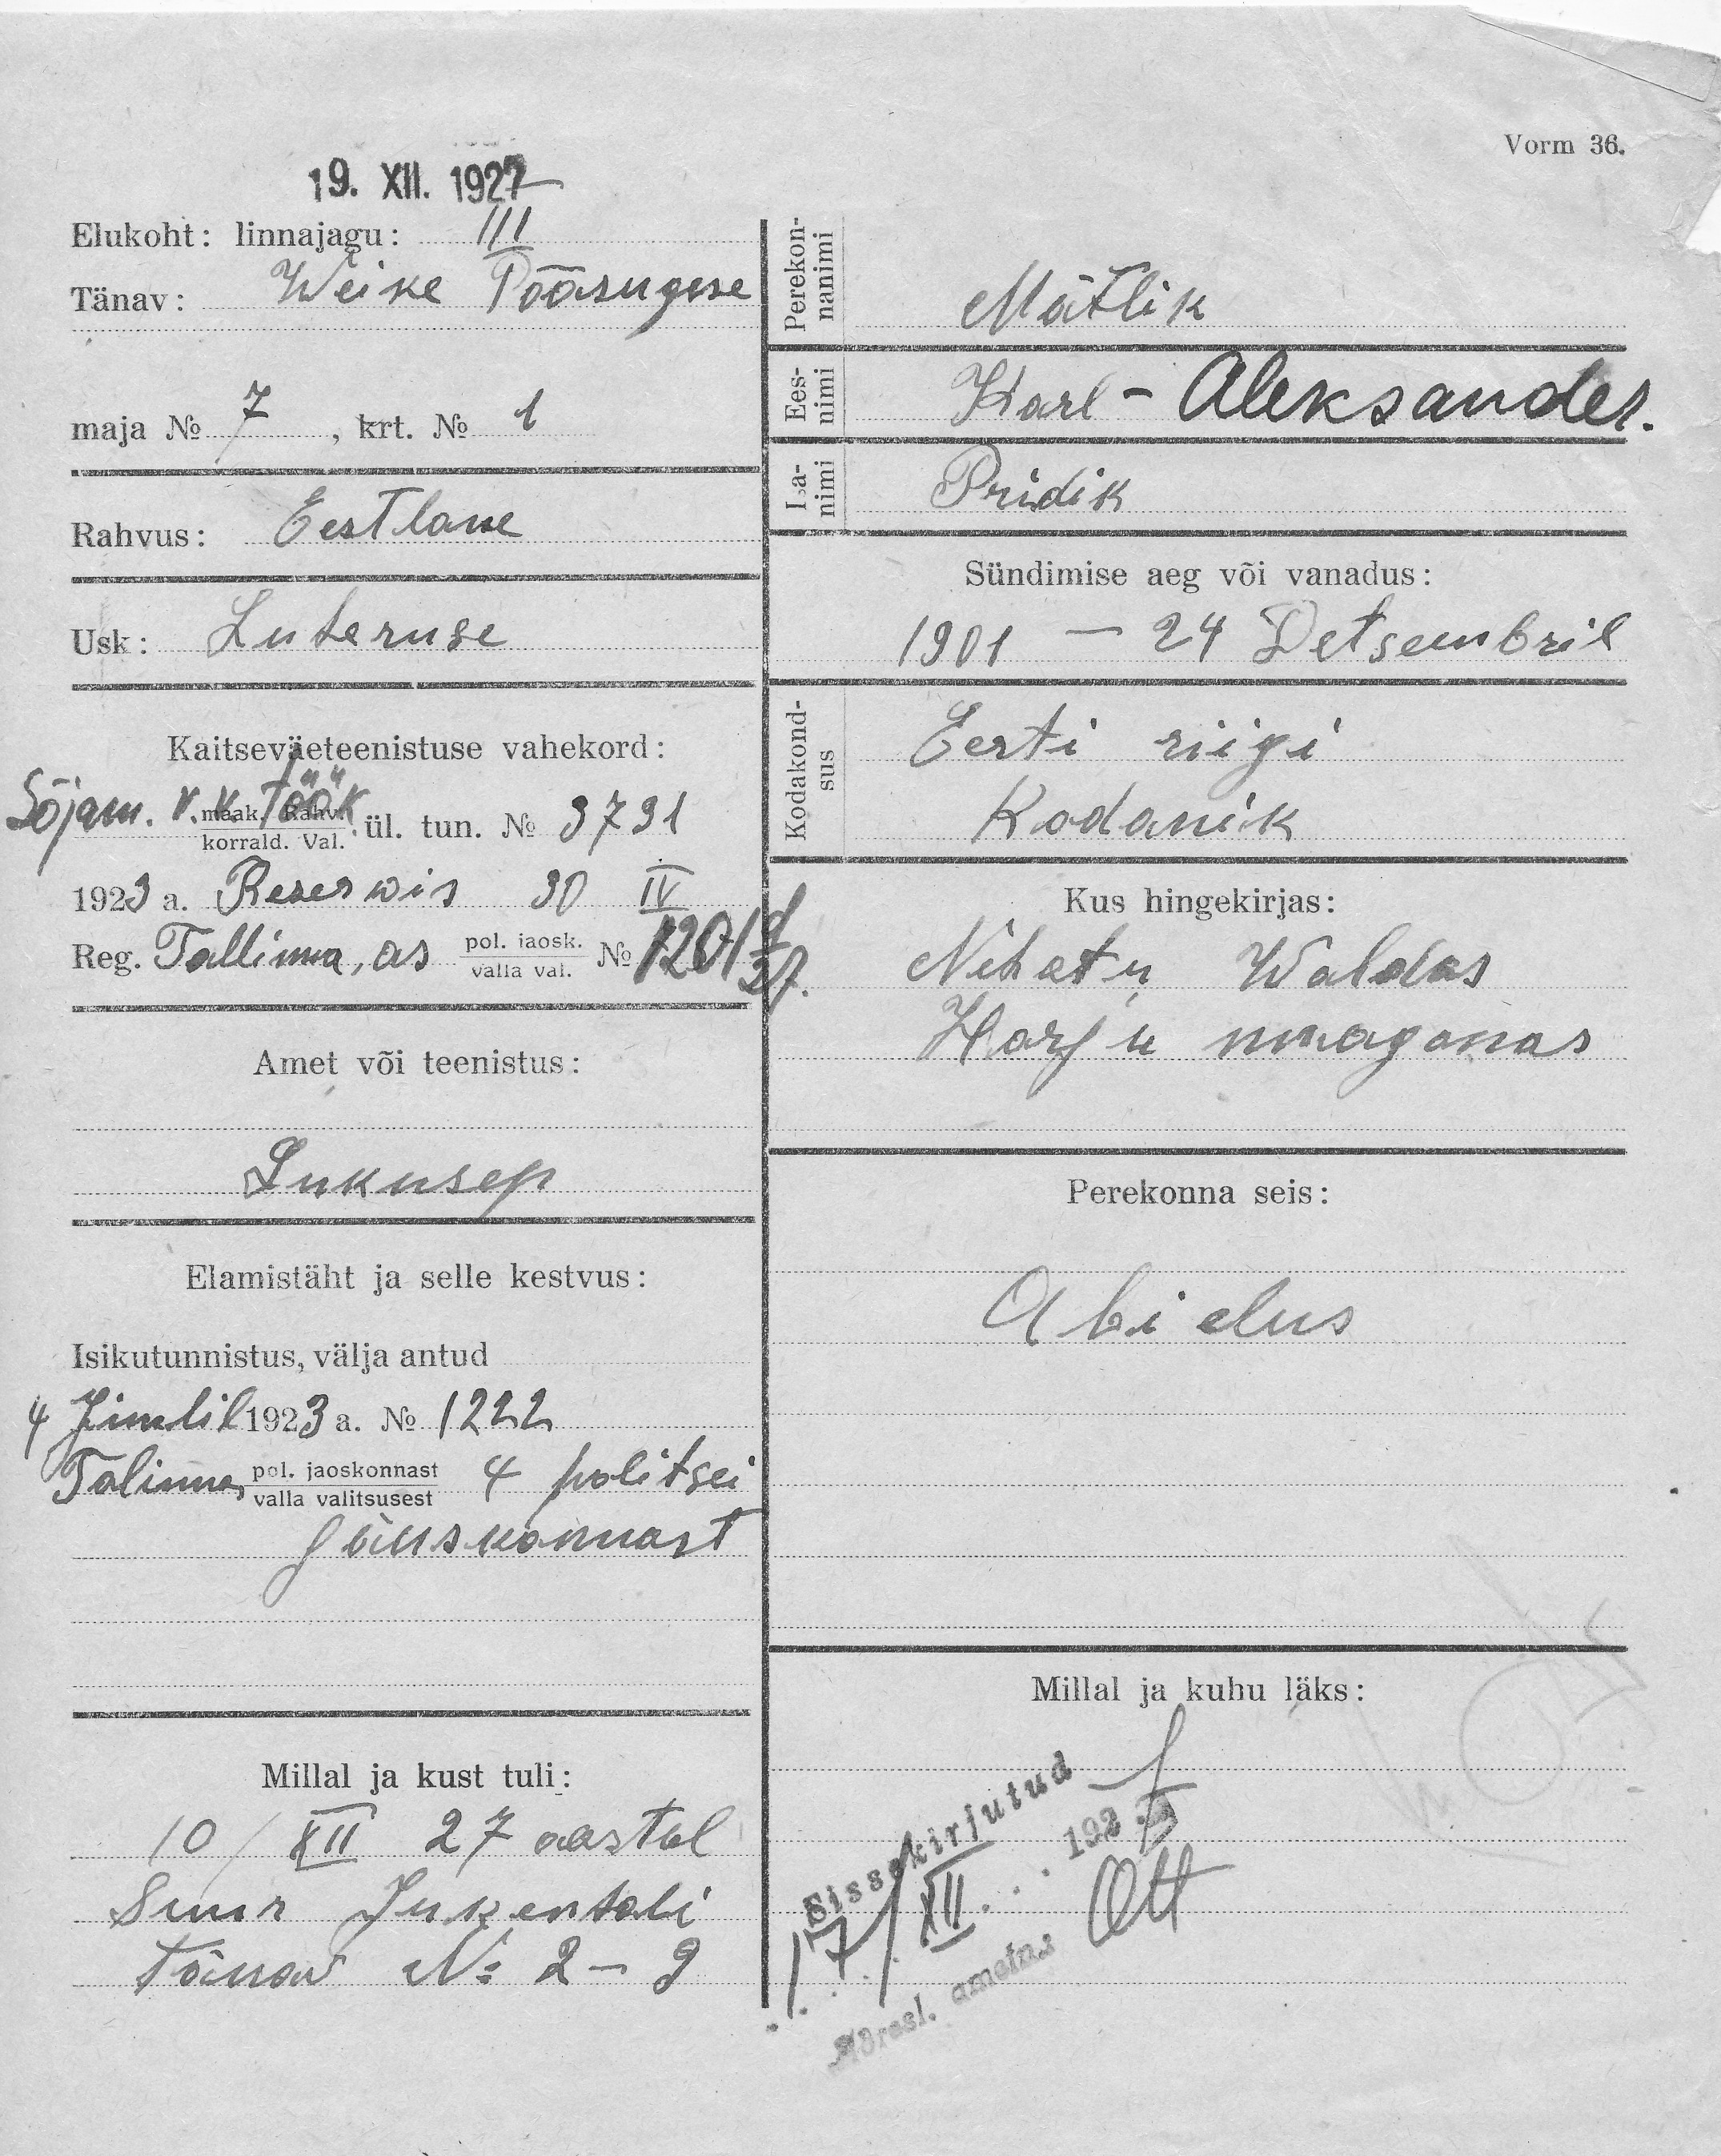 Vorm 36.
19. XII. 1927
Elukoht: linnajagu: III
Tänav: Weike Pääsugese
maja № 7, krt. № 1
Rahvus: Eestlane
Usk: Luteruse
Kaitseväeteenistuse vahekord:
Sõjam. v. k. Töök
maak. Rahv.
korrald. Val. ül. tun. № 3731
1923 a. Reserwis 30 IV
Reg. Tallinna, as pol. jaosk.
valla val. № 1201
Amet või teenistus:
Lukusep
Elamistäht ja selle kestvus:
Isikutunnistus, välja antud
4 Juulil 1923 a. № 1222
Talinna, pol. jaoskonnast
valla valitsusest 4 politsei
jäuskonnast
Millal ja kust tuli:
10/XII 27 aastal
Suur Jukentali
tänaw №: 2-9
Perekon-
nanimi Mätlik
Ees-
nimi Karl - Aleksander.
Isa-
nimi Pridik
Sündimise aeg või vanadus:
1901 - 24 Detsembril
Kodakond-
sus Eesti riigi
Kodanik
Kus hingekirjas:
Nehatu Waldas
Harju maagonas
Perekonna seis:
Abielus
Millal ja kuhu läks:
Sissekirjutud
17/XII 192
Adresl. ametns Ott